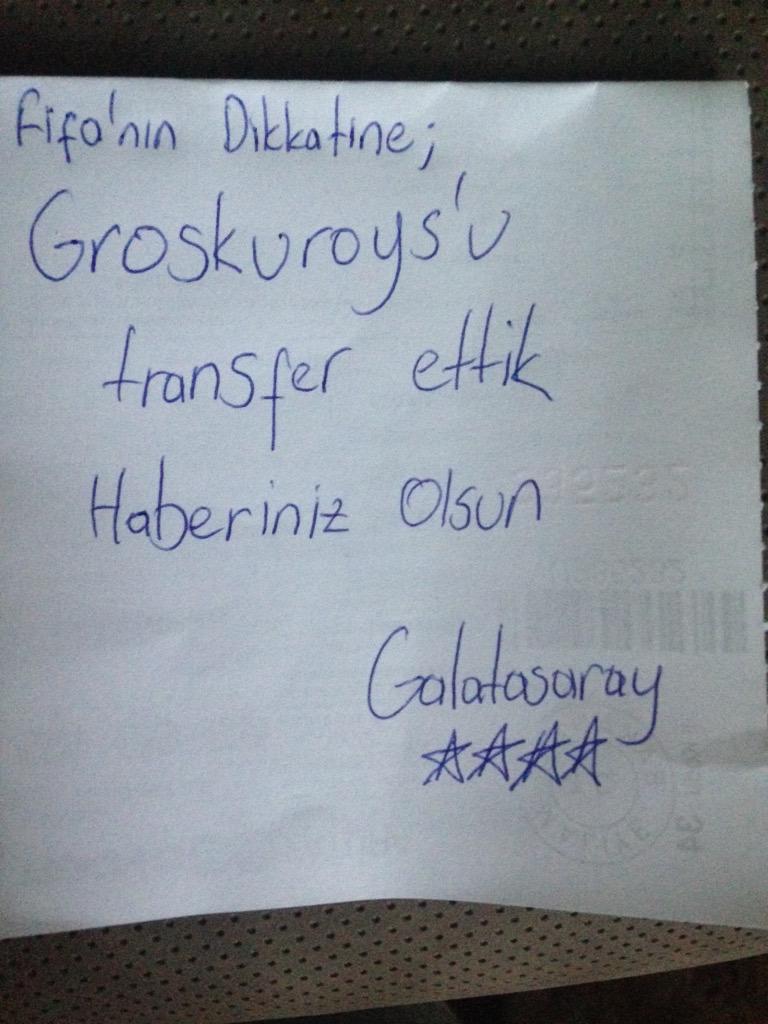 Fifa'nın Dikkatine;
Groskuroys'u
transfer ettik
Haberiniz Olsun
Galatasaray